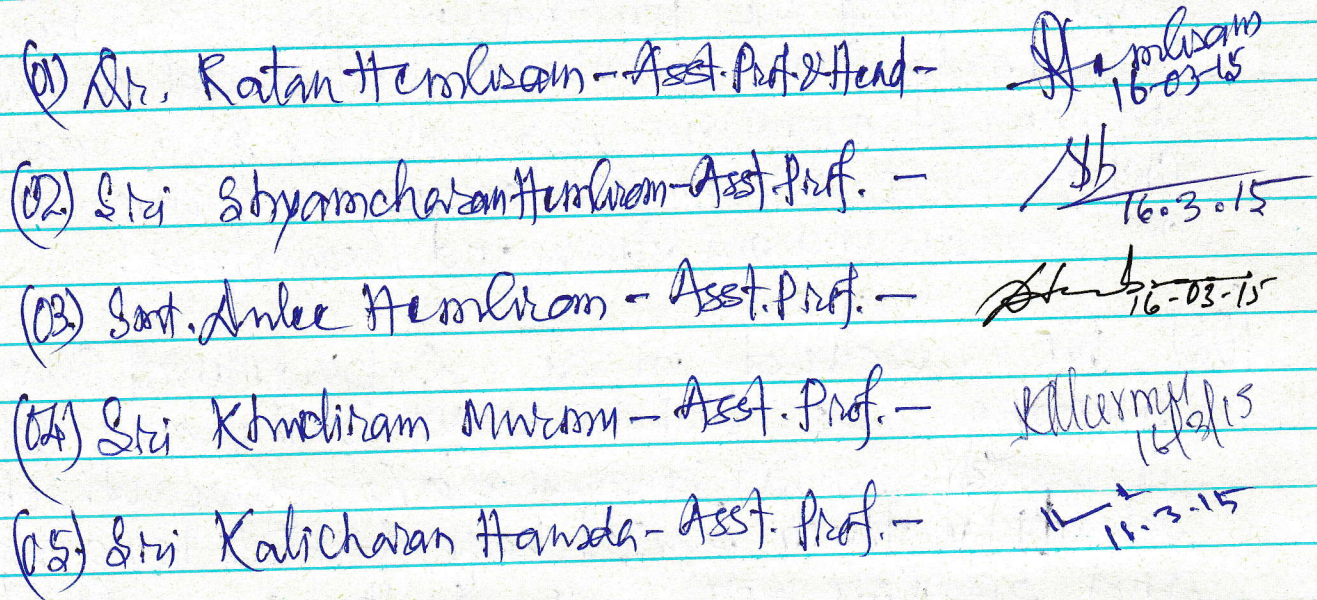 (01) Dr. Ratan Hembram - Asst. Prof. & Head - Hembram 16-03-15
(02) Sri Shyamcharan Hembrom - Asst. Prof. - 16.3.15
(03) Smt. Anlee Hembrom - Asst. Prof. - 16-03-15
(04) Sri Khudiram Murmu - Asst. Prof. - KMurmu 16/3/15
(05) Sri Kalicharan Hansda - Asst. Prof. - 16.3.15